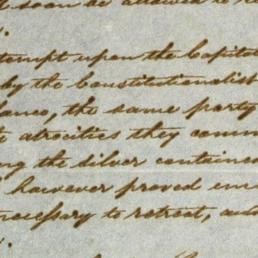 soon be allowed to
tempt upon the Capitol
by the Constitutionalist
the same party
atrocities they comm
ng the silver containe
however proved
necessary to retreat,